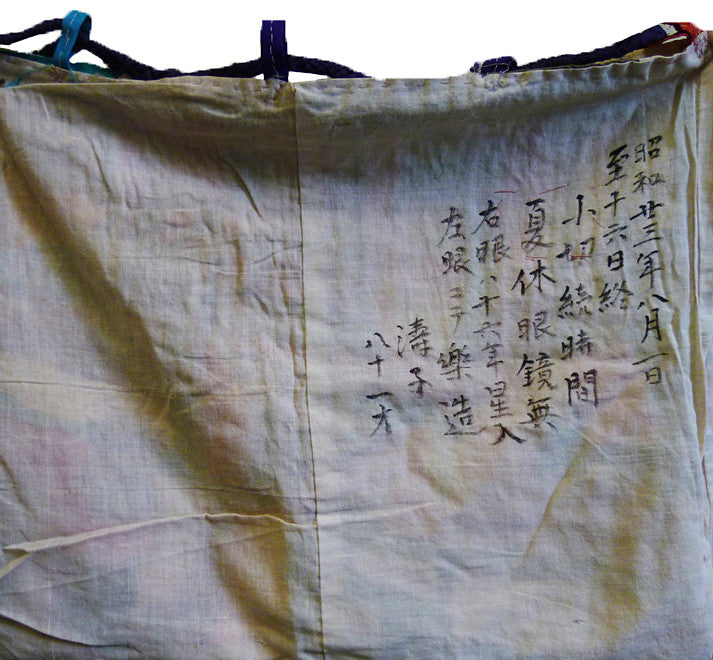 昭和廿三年八月一日
至十六日終
小切続時間
夏休眼鏡無
右眼八十六年星入
左眼ニテ樂造
濤子
八十一才